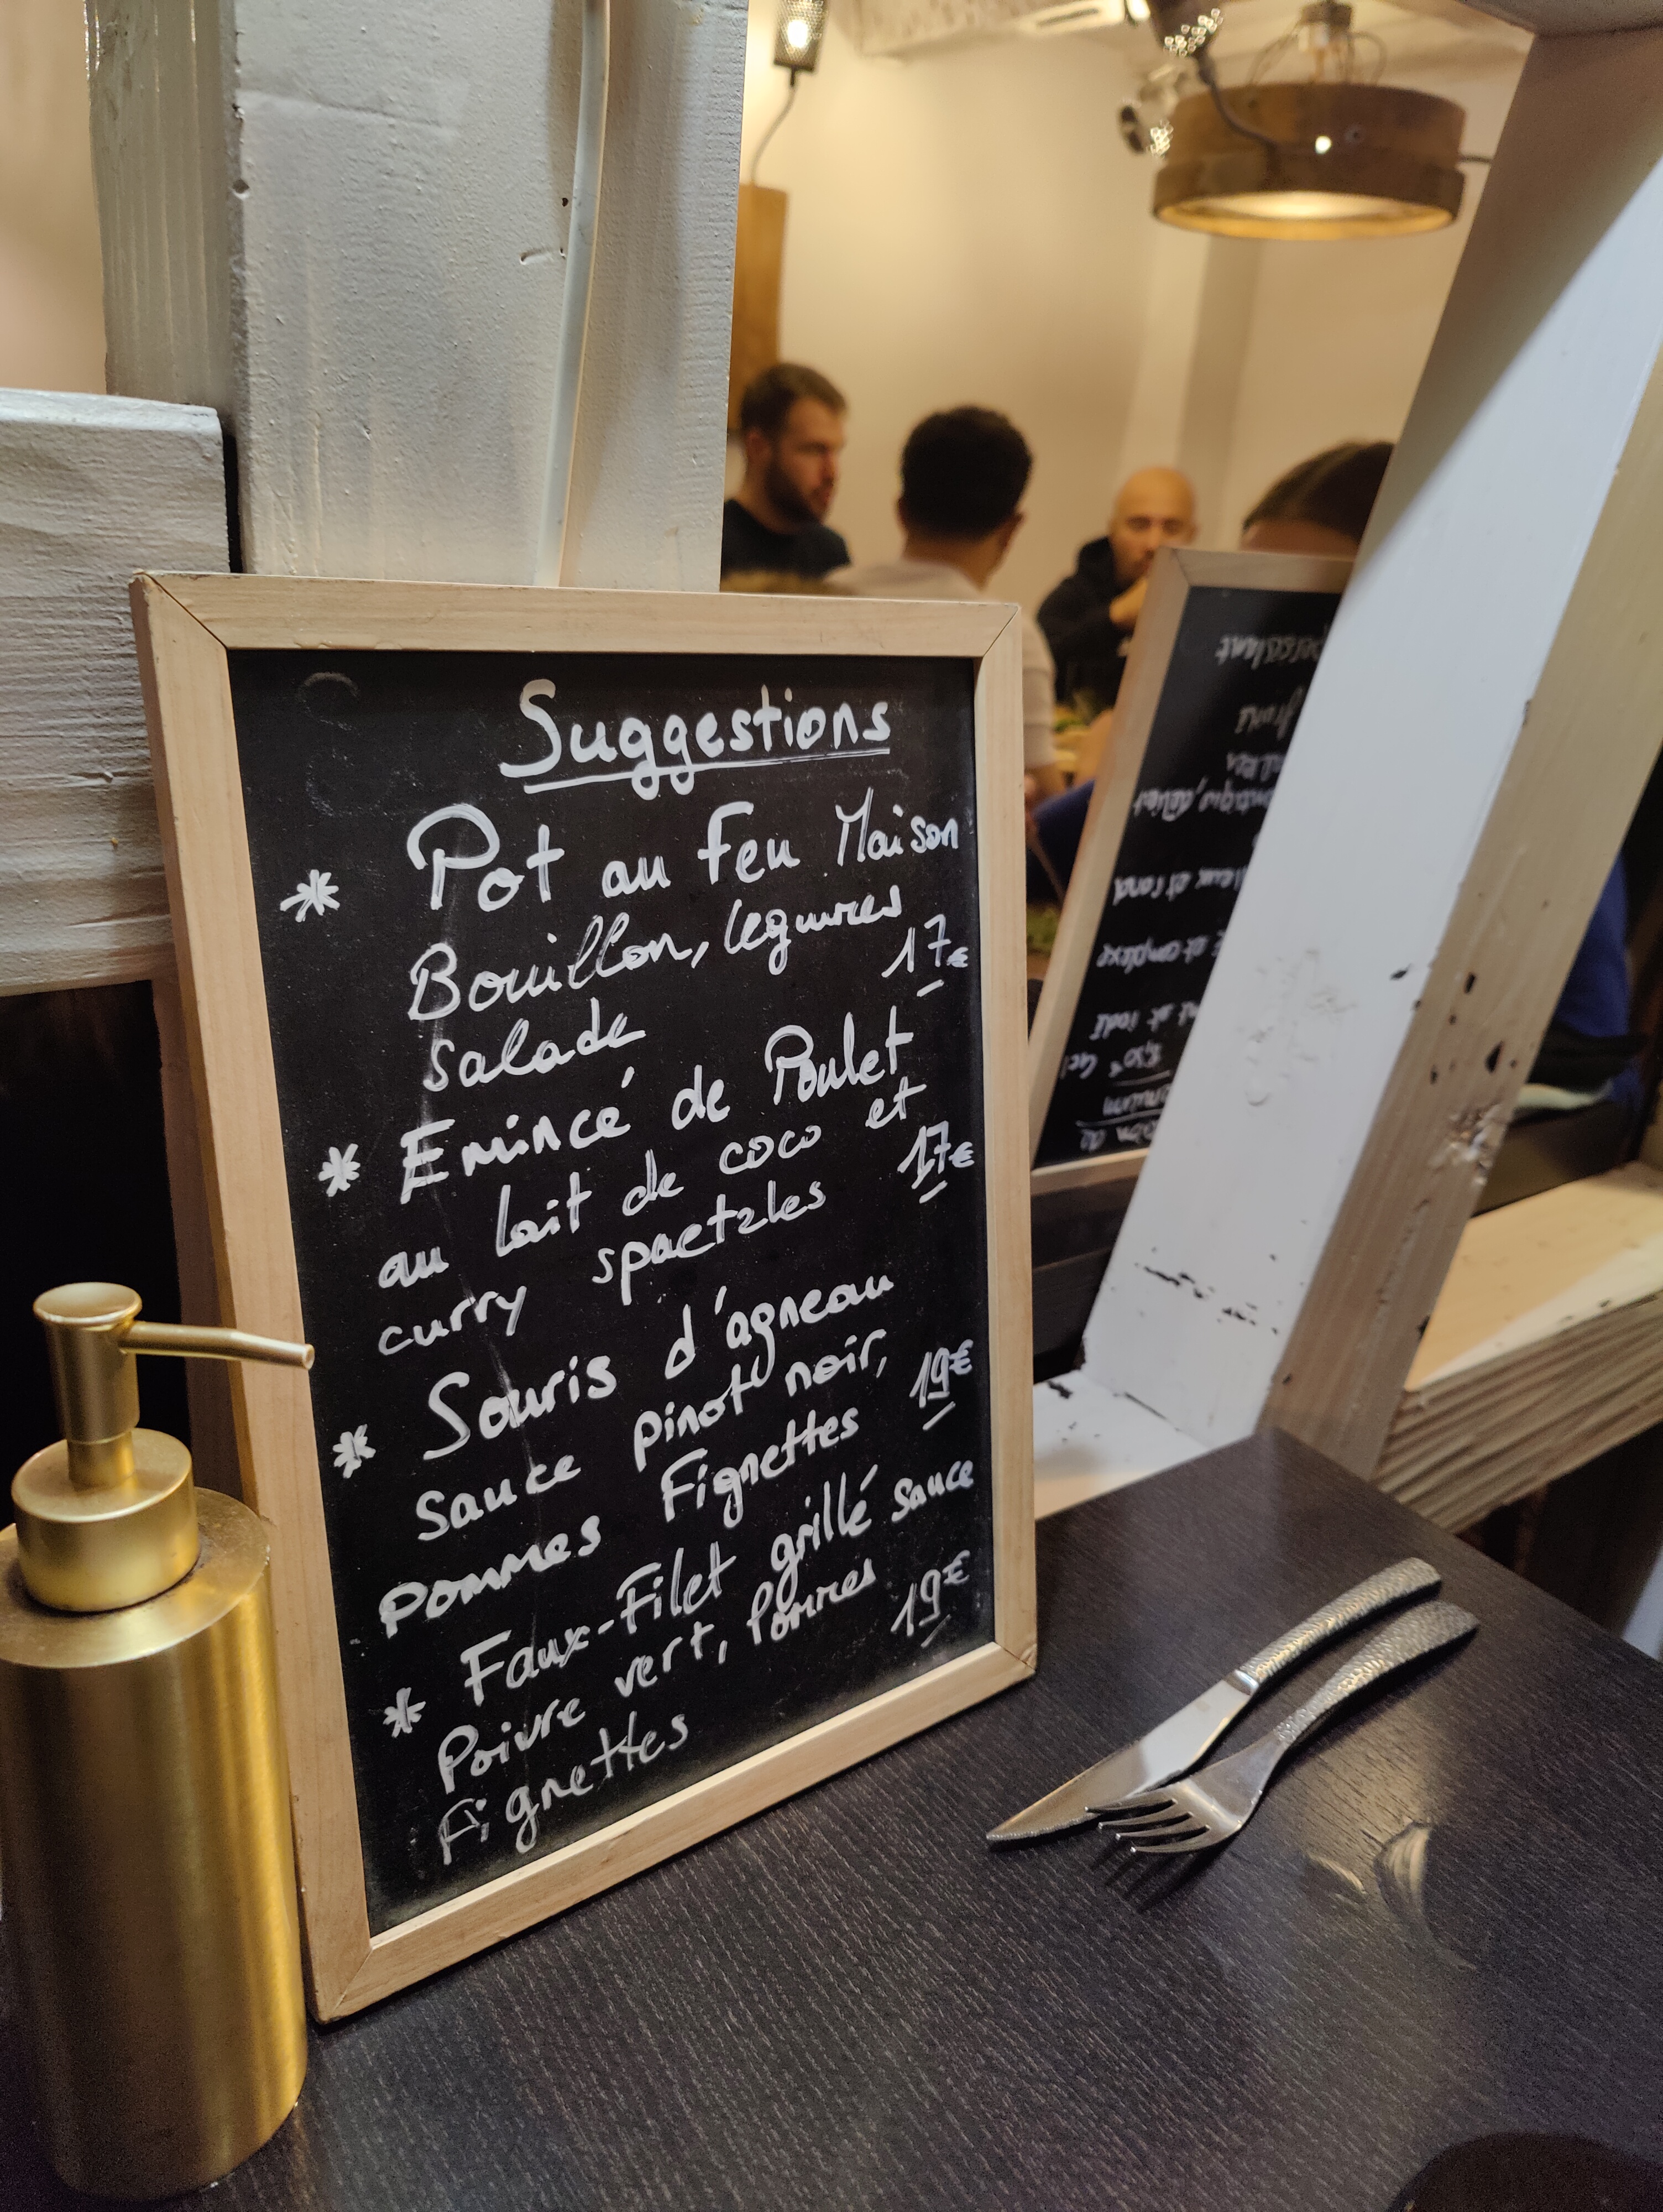 Suggestions
* Pot au Feu Maison
Bouillon, légumes
17€
salade
* Emincé de Poulet
au lait de coco et
curry spaetzles 17€
* Souris d'agneau
sauce pinot noir,
pommes Fignettes 19€
* Faux-Filet grillé sauce
Poivre vert, Pommes
Fignettes 19€
et rond
et complexe
et iodé